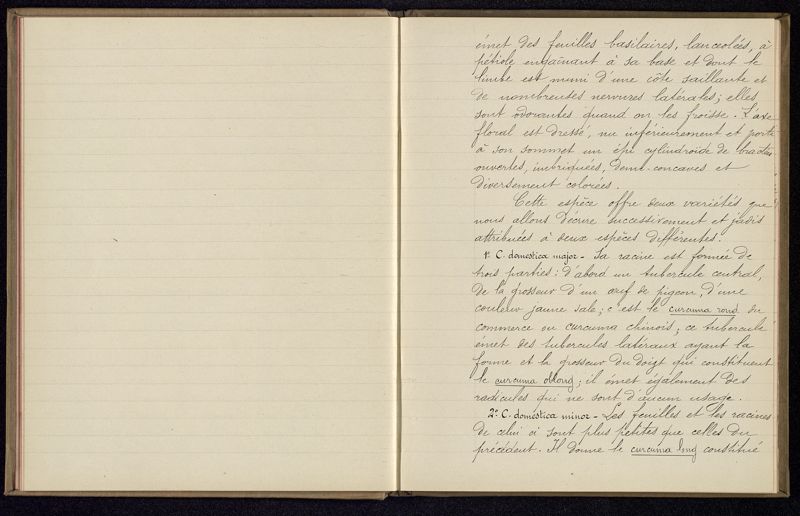 émet des feuilles basilaires, lancéolées, à
pétiole engaînant à sa base et dont le
limbe est muni d'une côte saillante et
de nombreuses nervures latérales; elles
sont odorantes quand on les froisse. L'axe
floral est dressé, nu inférieurement et porte
à son sommet un épi cylindroïde de bractées
ouvertes, imbriquées, demi-concaves et
diversement colorées.
Cette espèce offre deux variétés que
nous allons décrire successivement et jadis
attribuées à deux espèces différentes.
1º C. domestica major - Sa racine est formée de
trois parties: d'abord un tubercule central,
de la grosseur d'un œuf de pigeon, d'une
couleur jaune sale; c'est le curcuma rond du
commerce ou curcuma chinois; ce tubercule
émet des tubercules latéraux ayant la
forme et la grosseur du doigt qui constituent
le curcuma oblong; il émet également des
radicules qui ne sont d'aucun usage.
2º C. domestica minor - Les feuilles et les racines
de celui ci sont plus petites que celles du
précédent. Il donne le curcuma long constitué